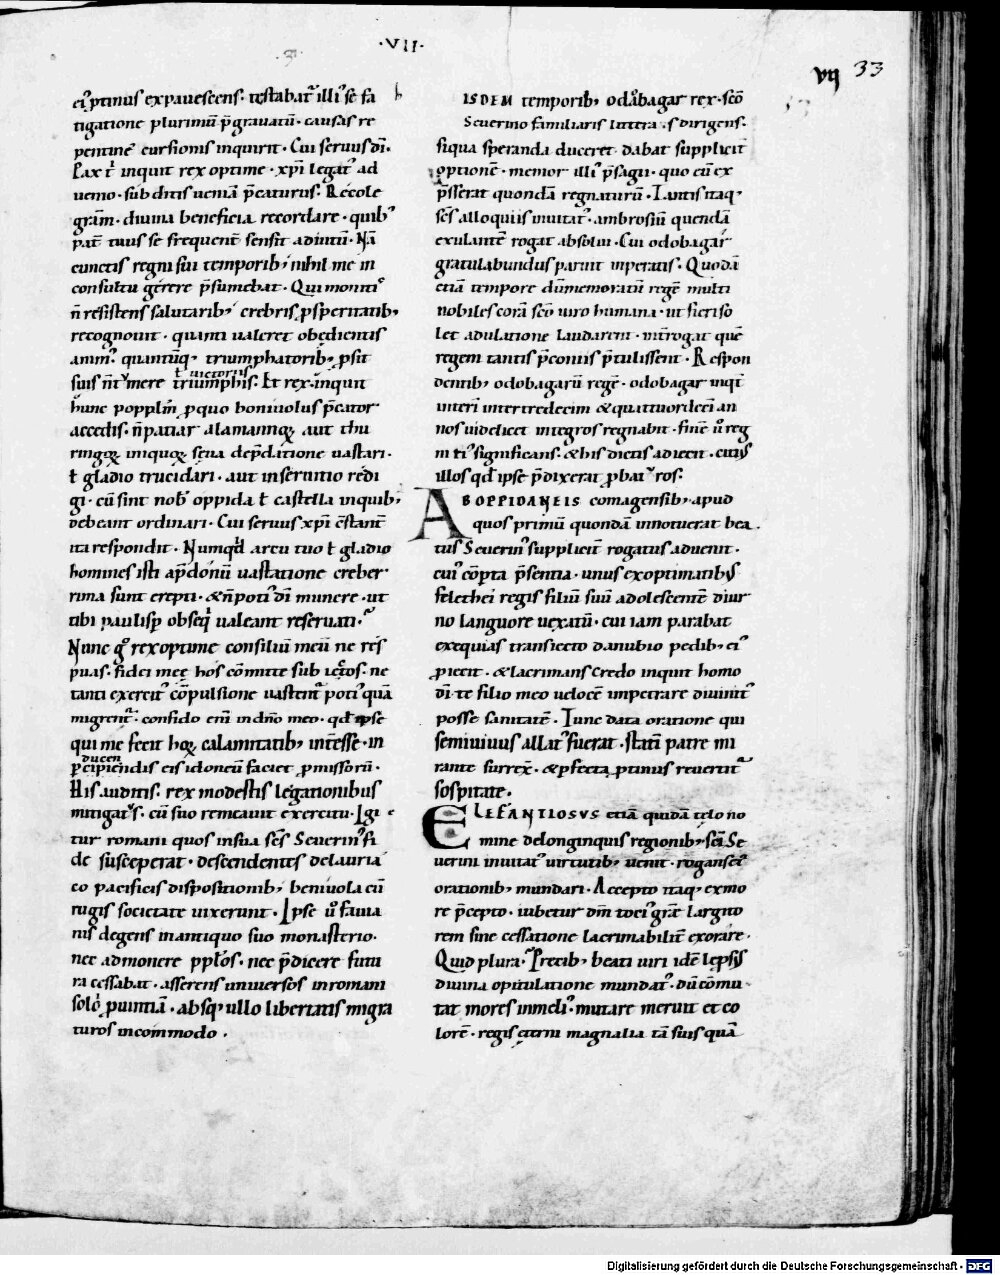 ·VII·
VII 33
ei' ptinus expauescens· testabat' illi' se fa
tigatione plurimū p̄grauatū· causas re
pentine' cursionis inquirit· Cui seruus dī·
Pax t' inquit rex optime· xp̄i legat' ad
uenio· subditis ueniā p̄caturus· Recole
gram̄· diuina beneficia recordare· quib'
pat̄ tuus se frequent̄ sensit adiutū· Nā
cunctis regni sui temporib; nihil me in
consultu gerere p̄sumebat· Qui moniti'
n̄ resistens salutarib; crebris p̄spernatib;
recognouit· quanti ualeret obedientis
anim'· quantūq; triumphatorib; p̄sit
ł uictoriis
suis n̄ tumere triumphis· Et rex· inquit
hunc popplm̄ p quo boniuolus p̄cator
accedis· n̄ patiar alamannoꝝ aut thu
ringoꝝ iniquoꝝ seua dep̄ditione uastari·
ł gladio trucidari· aut in seruitio redi
gi· cū sint nob' oppida ł castella inquib;
debeant ordinari· Cui seruus xp̄i c̄stant̄
ita respondit· Numqd' arcu tuo ł gladio
homines isti a p̄donū uastatione creber
rima sunt erepti· & n̄ poti' dī munere· ut
tibi paulisp obseq' ualeant reseruati·
Nunc g° rex optime consiliū meū ne res
puas· fidei meę hos cōmitte subiectos· ne
tanti exercit' cōpulsione uastent' poti' quā
migrent'· confido enī in dn̄o meo· qd̄ ipse
qui me fecit hoꝝ calamitatib; int̄esse· in
ducen
p̄cipiendis eis idoneū faciet p̄missorū·
His auditis· rex modestis legationibus
mitigat's· cū suo remeauit exercitu· Igi
tur romani quos in sua ses Seuerin' fi
de susceperat· descendentes de lauria
co pacificis dispositionib; beniuola cū
rugis societate uixerunt· Ipse u° fauia
nis degens in antiquo suo monasterio·
nec admonere pplos· nec p̄dicere futu
ra cessabat· asserens uniuersos in romani
soli puintiā· absq; ullo libertatis migra
turos incommodo·
ISDEM temporib; odabagar rex· scō
Seuerino familiaris litteras dirigens·
siqua speranda duceret dabat supplicit̄
optionē· memor illi' p̄sagii· quo eū ex
p̄sserat quondā regnaturū· Tantis itaq;
scs̄ alloquiis inuitat'· ambrosiū quendā
exulantē rogat absolui· Cui odobagar
gratulabundus paruit inperatis· Quodā
etiā tempore dū memoratū regē multi
nobiles corā scō uiro humana· ut fieri so
let adulatione laudarent· int̄rogat quē
regem tantis p̄coniis p̄tulissent· Respon
dentib; odobagarū regē· odobagar inqt̄
interī inter tredecim & quattuordecī an
nos uidelicet integros regnabit· finē u° reg
ni ei' significans· & his dictis adiecit· cuius
illos qd̄ ipse p̄dixerat p̄batu'ros·
AB OPPIDANEIS comagensib; apud
quos primū quondā innotuerat bea
tus Seuerin' supplicit̄ rogatus aduenit·
cui' cōpta p̄sentia· unus ex optimatibus
felethei regis filiū suū adolescentē diur
no languore uexatū· cui iam parabat
exequias transiecto danubio pedib; ei'
p̄iecit· & lacrimans credo inquit homo
dī· te filio meo uelocē impetrare diuinit'
posse sanitatē· Tunc data oratione qui
semiuiuus allat' fuerat· statī patre mi
rante surrex̄· & pfecta ptinus reuertit'
sospitate·
ELEFANTIOSUS etiā quidā telo no
mine de longinquis regionib; scī Se
uerini inuitat' uirtutib; uenit· rogans ei'
orationib; mundari· Accepto itaq; ex mo
re p̄cepto· iubetur dm̄ toci' gr̄e largito
rem sine cessatione lacrimabilit̄ exorare·
Quid plura' Precib; beati uiri idē lepsus
diuina opitulatione mundat'· dū cōmu
tat mores in meli' mutare meruit et co
lorē· regis et̄ni magnalia tā suis quā